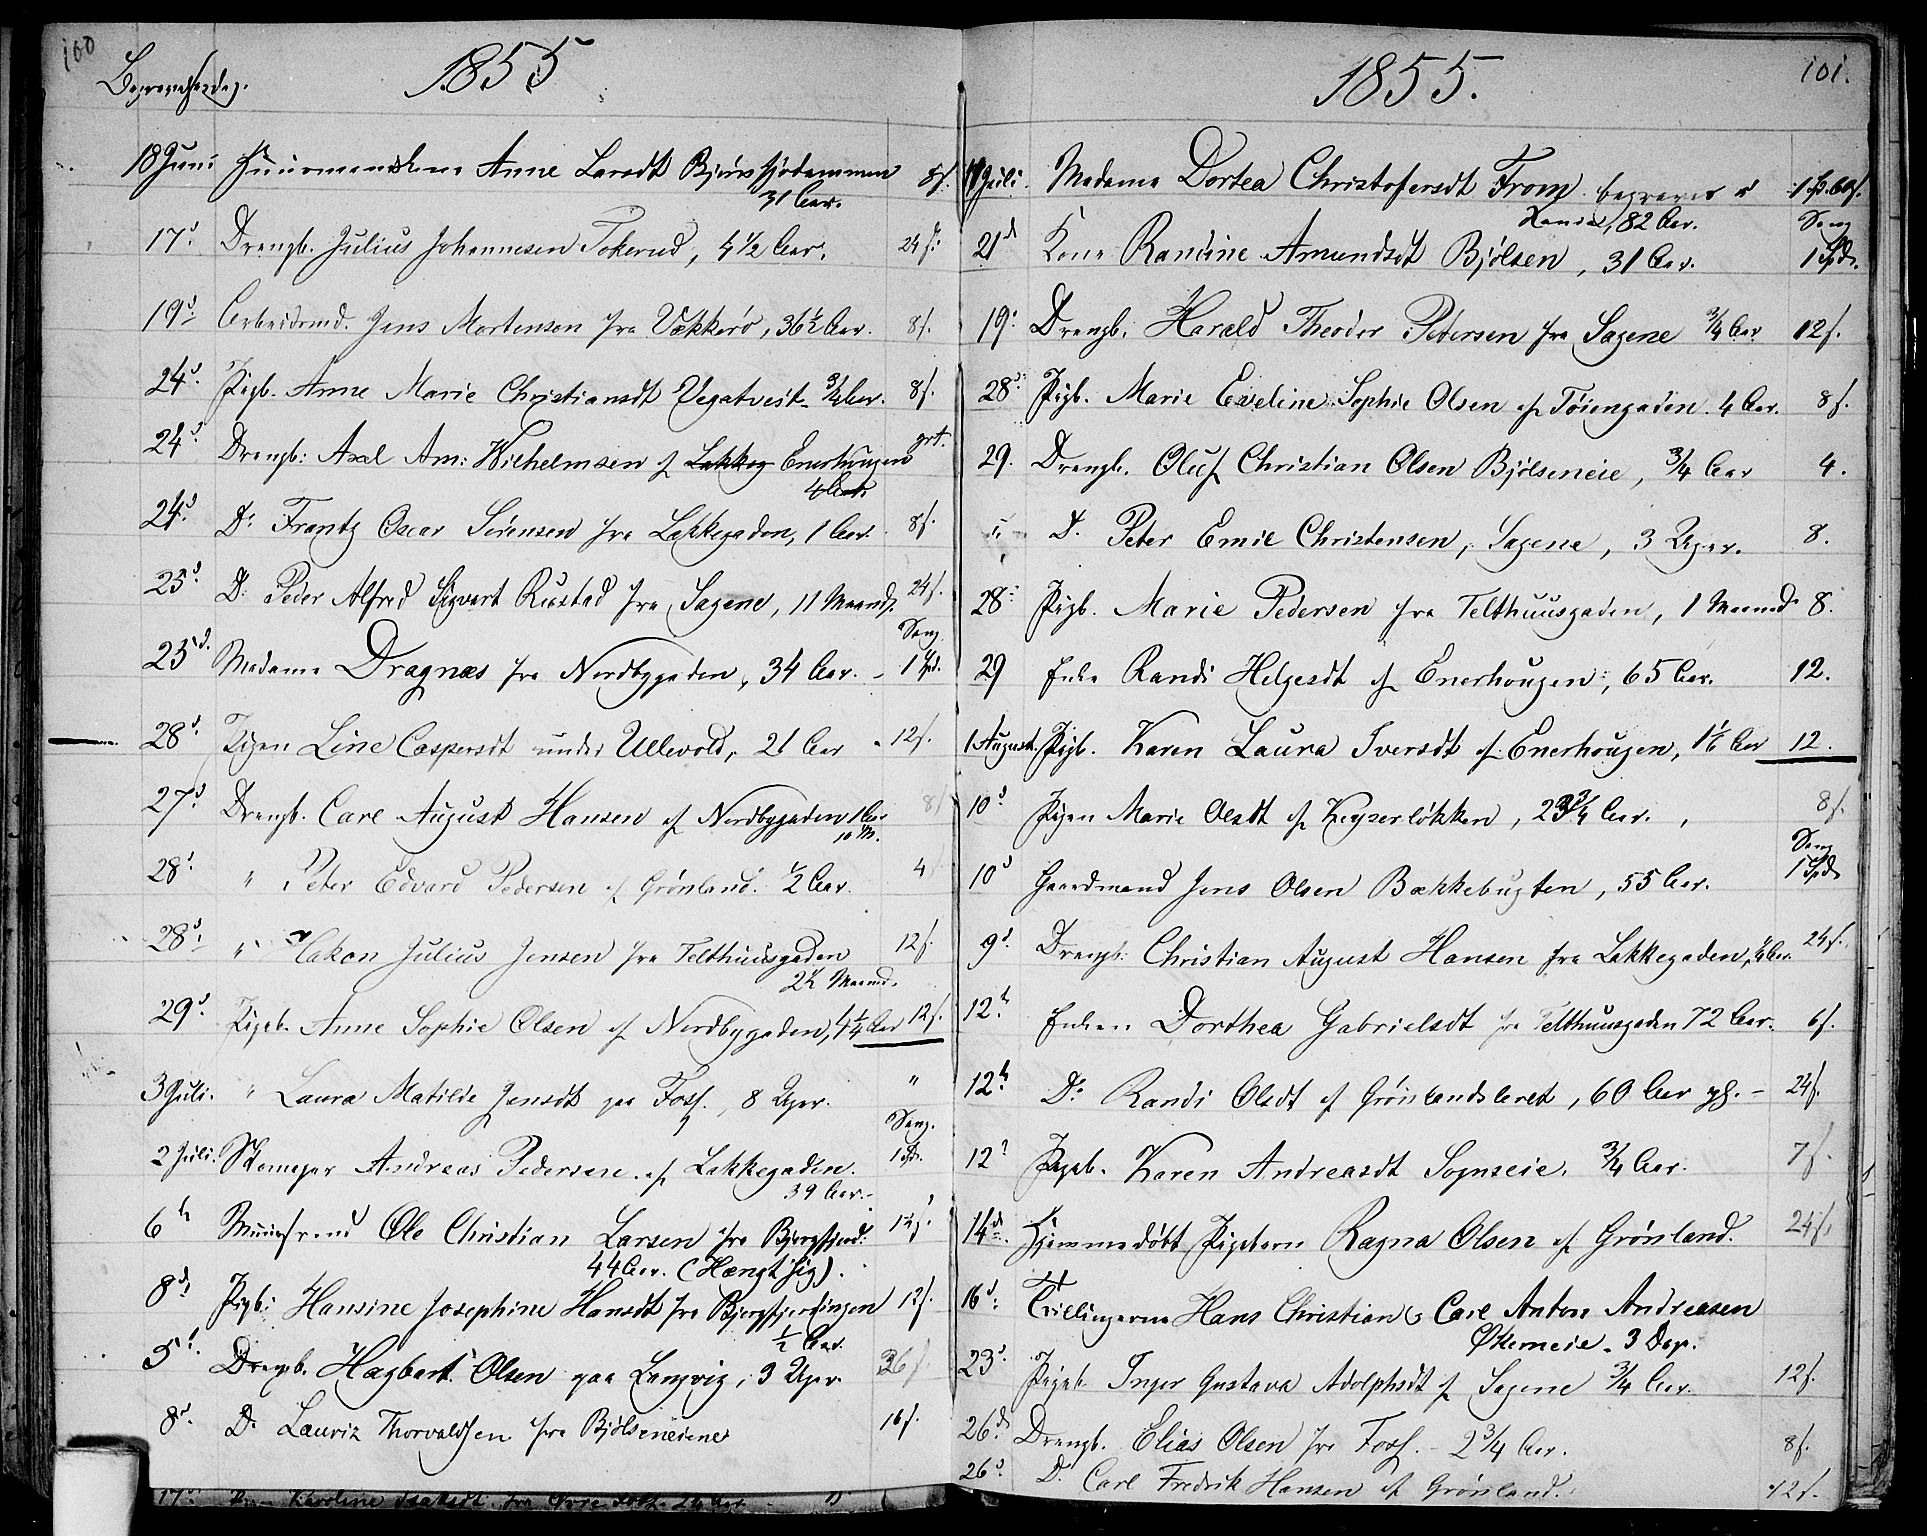 100
1855
Begravelsesdag.
18 Juni Huusmandskone Anne Larsdt Bjørnstjødammen 8f.
31 Aar.
17d Drengb. Julius Johannesen Tokerud, 4 1/2 Aar. 24 f.
19d Arbeidsmd. Jens Mortensen fra Vækkerø, 36 1/2 Aar. 8f.
24d. Pigb. Anne Marie Christiansdt Vegatveit 3/4 Aar. 8f.
24d. Drengb: Axel Am: Wilhelmsen af Enerhougen grt.
4 Aar.
24d. Do Frantz Oscar Sørensen fra Lakkegaden, 1 Aar. 8f.
25d. Do Peder Alfred Sigvart Rustad fra Sagene, 11 Maand. 24f.
Sang
25d. Madame Dragnæs fra Nordbygaden, 34 Aar. 1 Spd.
28d. Pigen Line Caspersdt under Ullevold, 21 Aar 12f.
27d Drengb. Carl August Hansen af Nordbygaden 1 Aar 8f
10 M.
28d. " Peter Edvard Pedersen af Grønland. 1/2 Aar. 4
28d. " Hakon Julius Jensen fra Telthuusgaden 12f.
2 1/2 Maand.
29d. Pigeb. Anne Sophie Olsen af Nordbygaden, 4 1/4 Aar 12f.
3 Juli. " Laura Matilde Jensdt paa Foss., 8 Uger. "
Sang.
2 Juli. Skomager Andreas Pedersen af Lakkegaden. 1 Spd.
39 Aar.
6te Ole Christian Larsen fra Bjergfjerd: 12f.
44 Aar. (Hængt sig).
8de Pigb: Hansine Josephine Hansdt fra Bjergfjerdingen 12f.
1/2 Aar.
5t. Drengb. Hagbart Olsen paa Langvig, 3 Uger 36f.
8d. Do Lauriz Thorvaldsen fra Bjølseneiene 16f.
101.
1855.
Juli. Madame Dortea Christofersdt From. begraves
82 Aar. Sang
21d Kone Randine Amundsdt Bjølsen, 31 Aar. 1 Spd.
19d Drengb. Harald Theodor Petersen fra Sagene 3/4 Aar 12f.
28d. Pigb. Marie Eveline Sophie Olsen af Tøiengaden. 4 Aar. 8f.
29. Drengb. Oluf Christian Olsen Bjølseneie, 3/4 Aar 4.
" D. Peter Emil Christensen, Sagene, 3 Uger. 8.
28d Pigb. Marie Pedersen fra Telthuusgaden, 1 Maaned 8.
29 Enke Randi Helgesdt af Enerhougen, 65 Aar. 12.
1 August. Pigb. Karen Laura Iversdt af Enerhougen, 1 1/6 Aar 12.
10d Pigen Marie Olsdt af Keyserløkken, 23 3/4 Aar. 8f.
Sang
10d Gaardmand Jens Olsen Bækkebugten, 55 Aar. 1 Spd.
9d. Drengb: Christian August Hansen fra Lakkegaden, Aar. 24f.
12te Enken Dorthea Gabrielsdt fra Telthuusgaden 72 Aar. 6f.
12te Do Randi Olsdt af Grønlandsleret, 60 Aar gl. 24f.
12te Pigeb. Karen Andreasdt Sognseie. 3/4 Aar. 7f.
14de Hjemmedøbt Pigebarn Ragna Olsen af Grønland. 24f.
16d. Tvillingerne Hans Christian & Carl Anton Andreasen
Økerneie. 3 Dage.
23d. Pigeb. Inger Gustava Adolphsdt af Sagene 3/4 Aar. 12f.
26d Drengb. Elias Olsen fra Foss. 2 3/4 Aar. 8f.
26d. D. Carl Fredrik Hansen af Grønland. 12f.